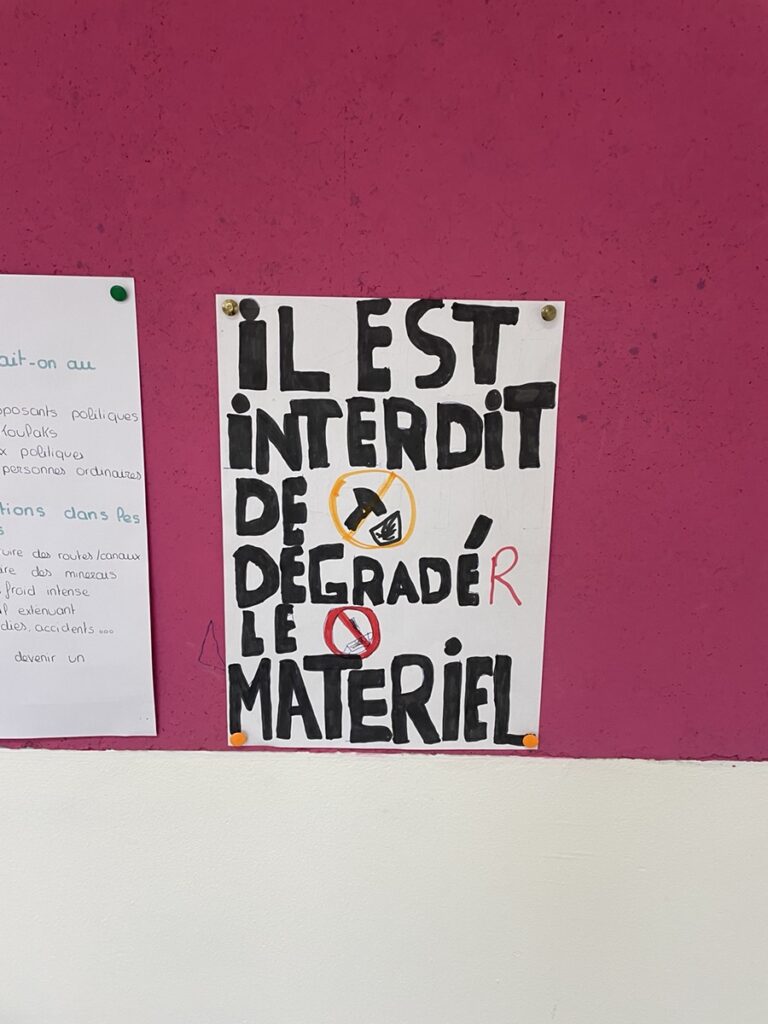 ait-on au
pposants politiques
Koulaks
x politiques
personnes ordinaires
tions dans les
s
uire des routes/canaux
ire des minerais
froid intense
extenuant
dies, accidents...
devenir un
iL EST
iNTERDiT
DE
DÉGRADÉR
LE
MATERiEL